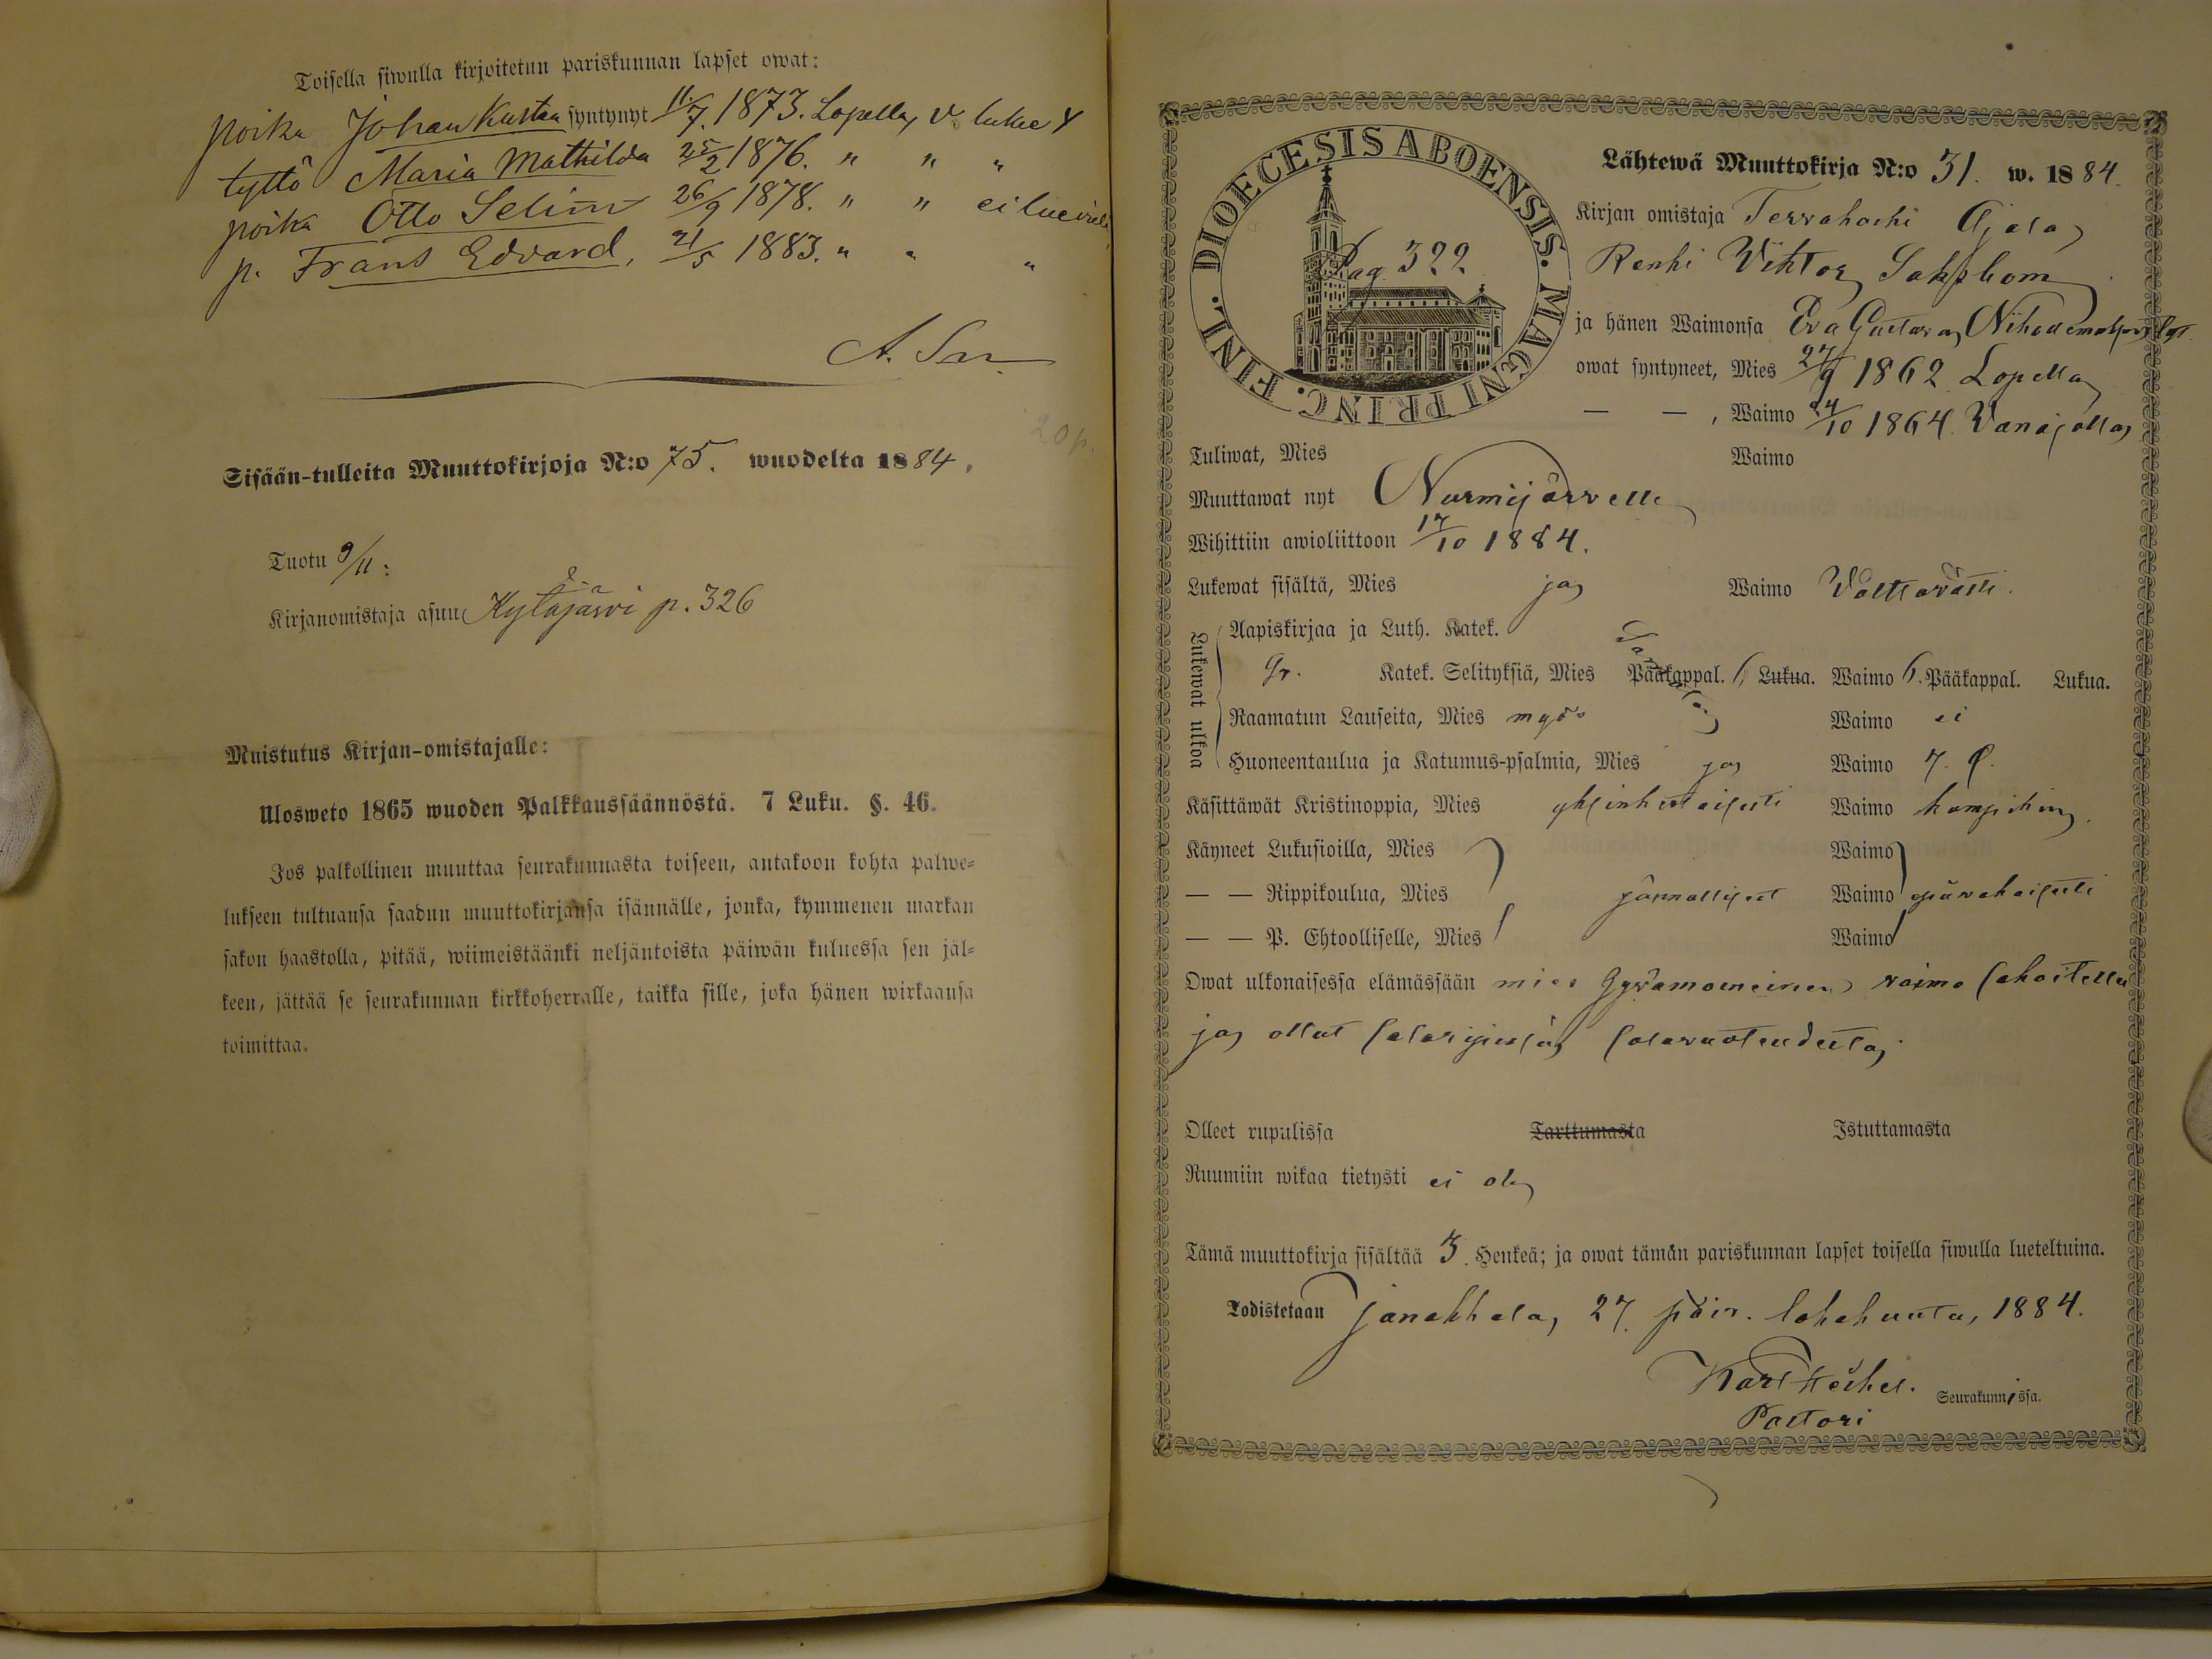 Toisella siwulla kirjoitetun pariskunnan lapset owat:
poika Johan Kustaa syntynyt 11/7. 1873. Lopella, lukee
tyttö Maria Mathilda 25/2 1876. " " "
poika Otto Selim 26/9 1878. " " ei lue
p. Frans Edvard, 21/5 1883. " " "
A.
20 p.
Sisään-tulleita Muuttokirjoja N:o 75. wuodelta 1884.
Tuotu 9/11:
Kirjanomistaja asuu Kytäjärvi p. 326
Muistutus Kirjan-omistajalle:
Ulosweto 1865 wuoden Palkkaussäännöstä. 7 Luku. §. 46.
Jos palkollinen muuttaa seurakunnasta toiseen, antakoon kohta palwe=
lukseen tultuansa saadun muuttokirjansa isännälle, jonka, kymmenen markan
sakon haastolla, pitää, wiimeistäänki neljäntoista päiwän kuluessa sen jäl=
keen, jättää se seurakunnan kirkkoherralle, taikka sille, joka hänen wirkaansa
toimittaa.
DIOECESIS ABOENSIS. MAGNI PRINC. FINL.
Pag 322
Lähtewä Muuttokirja N:o 31. w. 1884.
Kirjan omistaja
Renki Viktor
ja hänen Waimonsa Eva Gustava
owat syntyneet, Mies 27/9 1862 Lopella
— — , Waimo 24/10 1864. Vanajalla
Tuliwat, Mies Waimo
Muuttawat nyt Nurmijärvelle
Wihittiin awioliittoon 17/10 1884.
Lukewat sisältä, Mies ja Waimo Välttävästi.
Lukewat ulkoa
Aapiskirjaa ja Luth. Katek.
Gr. Katek. Selityksiä, Mies Pääkappal. 6. Lukua. Waimo 6. Pääkappal. Lukua.
Raamatun Lauseita, Mies myös Waimo ei
Huoneentaulua ja Katumus-psalmia, Mies ja Waimo
Käsittäwät Kristinoppia, Mies yksinkertaisesti Waimo
Käyneet Lukusioilla, Mies Waimo
— — Rippikoulua, Mies Waimo
— — P. Ehtoolliselle, Mies Waimo
Owat ulkonaisessa elämässään mies hyvämaineinen vaimo
ja ollut
Olleet rupulissa Tarttumasta Istuttamasta
Ruumiin wikaa tietysti ei ole
Tämä muuttokirja sisältää 3. Henkeä; ja owat tämän pariskunnan lapset toisella siwulla lueteltuina.
Todistetaan Janakkala, 27. päiv. lokakuuta, 1884.
Karl
Seurakunnissa.
Pastori